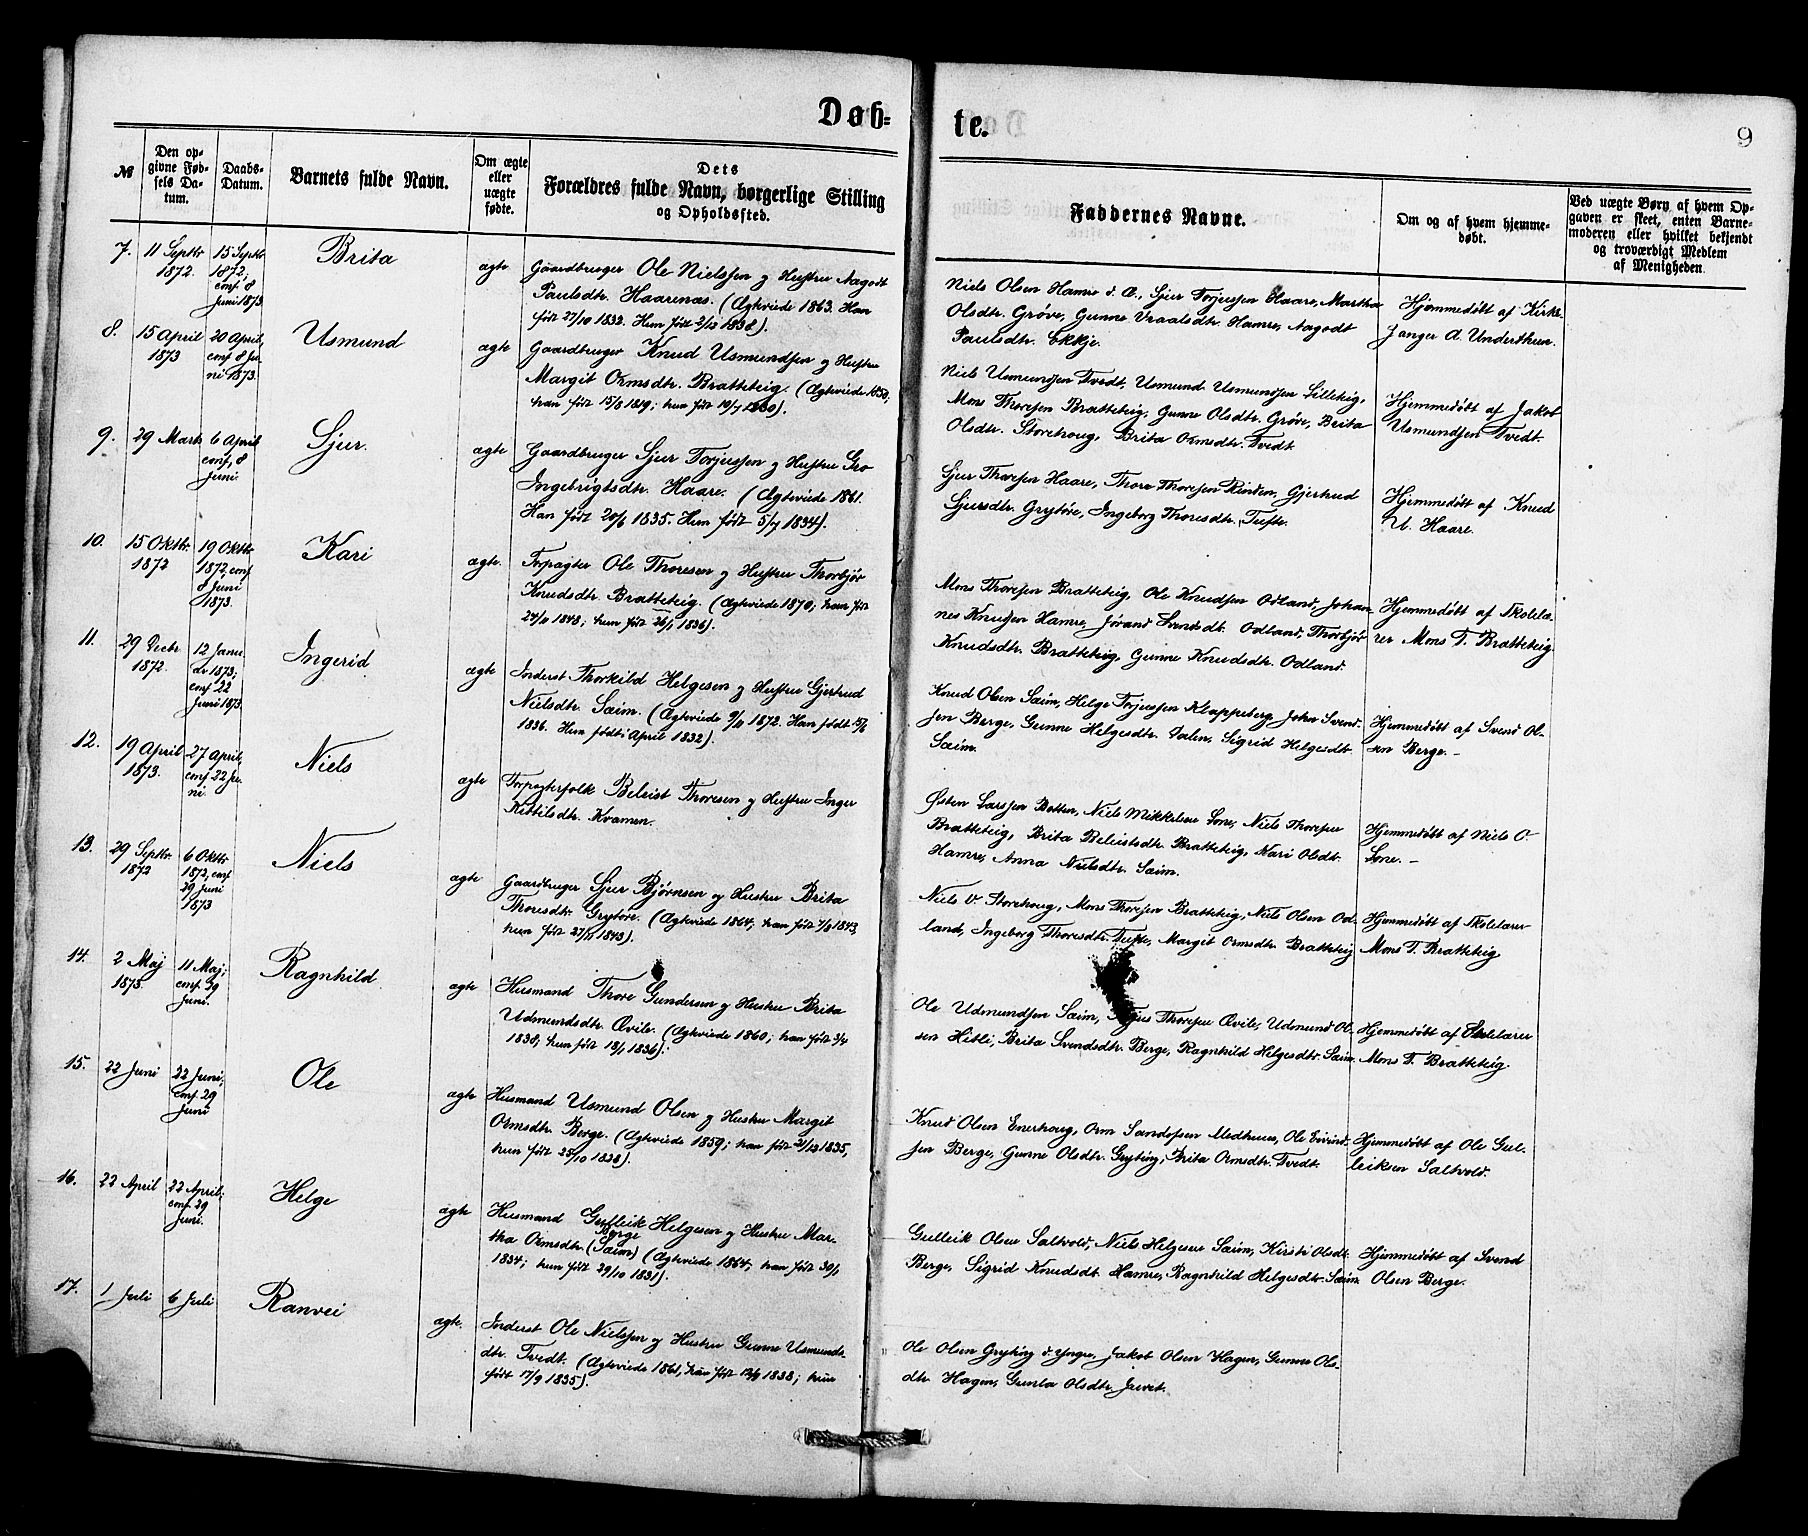 Døb-
te.
9
№
Den op-
givne Fød-
sels Da-
tum.
Daabs-
Datum.
Barnets fulde Navn.
Om ægte
eller
uægte
fødte.
Dets
Forældres fulde Navn, borgerlige Stilling
og Opholdssted.
Faddernes Navne.
Om og af hvem hjemme-
døbt.
Ved uægte Børn af hvem Op-
gaven er skeet, enten Barne-
moderen eller hvilket bekjendt
og troværdigt Medlem
af Menigheden.
7.
11 Septbr
1872.
15 Septbr
1872,
conf. 8
Juni 1873
Brita
ægte
Gaardbruger Ole Nielssen og Hustru Aagodt
Paulsdtr. Haarenæs. (Ægteviede 1863. Han
født 27/10 1832. Hun født 2/12 1838).
Niels Olsen Hamre d. Æ., Sjur Torjussen Haare, Martha
Olsdtr. Grøve, Gunne Vraalsdtr. Hamre, Aagodt
Paulsdtr. Ekkje.
Hjemmedøbt af Kirke-
sanger A. Underthun.
8.
15 April
1873
20 April,
conf. 8 Ju-
ni 1873.
Usmund
ægte
Gaardbruger Knud Usmundsen og Hustru
Margit Ormsdtr. Bratteteig. (Ægteviede 1850,
han født 15/6 1819; hun født 19/7 1830).
Niels Usmundsen Tvedt, Usmund Usmundsen Lilleteig,
Mons Thoresen Bratteteig, Gunne Olsdtr. Grøve, Brita
Olsdtr. Storehoug, Brita Ormsdtr. Tvedt.
Hjemmedøbt af Jakob
Usmundsen Tvedt.
9.
29 Marts
6 April
conf. 8
Juni.
Sjur.
ægte
Gaardbruger Sjur Torjussen og Hustru Gro
Ingebrigtsdtr. Haare. (Ægteviede 1861.
Han født 20/6 1835. Hun født 5/7 1834).
Sjur Thoresen Haare, Thore Thoresen Rinden, Gjertrud
Sjursdtr. Grytøre, Ingeborg Thoresdtr. Tufte.
Hjemmedøbt af Knud
U. Haare.
10.
15 Oktbr.
1872
19 Oktbr.
1872, conf
8 Juni
1873.
Kari
ægte.
Forpagter Ole Thoresen og Hustru Thorbjør
Knudsdtr. Bratteteig. (Ægteviede 1870; han født
24/11 1848; hun født 26/1 1836).
Mons Thoresen Bratteteig, Ole Knudsen Odland, Johan-
nes Knudsen Hamre, Jørand Svendsdt. Odland, Thorbjør
Knudsdtr. Bratteteig, Gunne Knudsdtr. Odland.
Hjemmedøbt af Skolelæ-
rer Mons T. Bratteteig.
11.
29 Decbr.
1872.
12 Janu-
ar 1873;
conf. 22
Juni 1873
Ingerid
ægte
Inderst Thorkild Helgesen og Hustru Gjertrud
Nielsdtr. Sæim. (Ægteviede 9/11 1872. Han født 15/6
1836. Hun født i April 1832).
Knud Olsen Sæim, Helge Torjussen Kloppeberg, John Svend-
sen Berge, Gunne Helgesdtr. Dalen, Sigrid Helgesdtr.
Sæim.
Hjemmedøbt af Svend Ol-
sen Berge.-
12.
19 April
1873.
27 April,
conf 22 Ju-
ni.
Niels
ægte
Forpagterfolk Beleist Thoresen og Hustru Inger
Kittilsdtr. Kvamen.
Østen Larssen Botten, Niels Mikkelsen Lone, Niels Thoresen
Bratteteig, Brita Beleistsdtr. Bratteteig, Kari Olsdt.
Hamre, Anna Nielsdtr. Sæim.
Hjemmedøbt af Niels O.
Lone.-
13.
29 Septbr.
1872
6 Oktbr
1872, conf
29 Juni
1873
Niels
ægte
Gaardbruger Sjur Bjørnsen og Hustru Brita
Thoresdtr. Grytøre. (Ægteviede 1864; han født 7/9 1843,
hun født 27/11 1843).
Niels V. Storehoug, Mons Thoresen Bratteteig, Niels Olsen Od-
land, Ingeborg Thoresdtr. Tufte, Margit Ormsdtr. Bratteteig
Hjemmedøbt af Skolelærer
Mons T. Bratteteig
14.
2 Maj
1873.
11 Maj;
conf. 29
Juni.
Ragnhild.
ægte
Husmand Thore Gundersen og Hustru Brita
Udmundsdtr. Øvile. (Ægteviede 1860; han født 3/4
1830; hun født 18/1 1836).
Ole Udmundsen Sæim, Torjus Thoresen Øvile, Udmund Ol-
sen Hibli, Brita Svendsdtr. Berge, Ragnhild Helgesdtr. Sæim.
Hjemmedøbt af Skolelærer
Mons T. Bratteteig.
15.
22 Juni
22 Juni,
conf. 29
Juni
Ole
ægte
Husmand Usmund Olsen og Hustru Margit
Ormsdtr. Berge. (Ægteviede 1859; han født 21/12 1835,
hun født 25/10 1838).
Knud Olsen Enerhoug, Orm Sandofsen Medhuus, Ole Eivind-
sen Berge, Gunne Olsdtr. Gryting, Brita Ormsdtr. Tvedt.
Hjemmedøbt af Ole Gul-
leiksen Saltvold.
16.
22 April
22 April,
conf. 29
Juni.
Helge
ægte
Husmand Gulleik Helgesen og Hustru Mar-
Berge
tha Ormsdtr. (Sæim) (Ægteviede 1864; han født 30/1
1834; hun født 29/10 1831).
Gulleik Olsen Saltvold, Niels Helgesen Sæim, Kirsti Olsdt.
Berge, Sigrid Knudsdt. Hamre, Ragnhild Helgesdtr. Sæim
Hjemmedøbt af Svend
Olsen Berge.
17.
1 Juli
6 Juli
Ranvei
ægte.
Inderst Ole Nielssen og Hustru Gunne Usmunds-
dtr. Tvedt. (Ægteviede 1861, han født 12/9 1838; hun
født 17/9 1835).
Ole Olsen Gryting d. yngre, Jakob Olsen Hagen, Gunne Ols-
dtr. Hagen, Gunla Olsdtr.